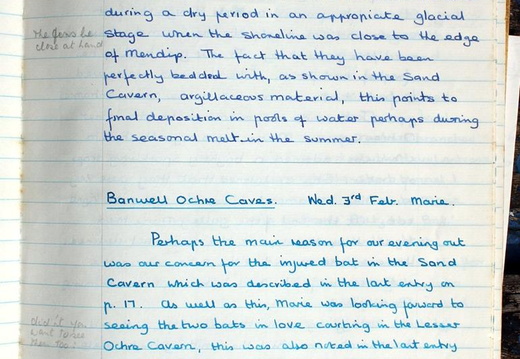 during a dry period in an appropiate glacial
stage when the shoreline was close to the edge
of Mendip. The fact that they have been
perfectly bedded with, as shown in the Sand
Cavern, argillaceous material, this points to
final deposition in pools of water perhaps during
the seasonal melt-in the summer.
Banwell Ochre Caves. Wed. 3rd Febr. Marie.
Perhaps the main reason for our evening out
was our concern for the injured bat in the Sand
Cavern which was described in the last entry on
p. 17. As well as this, Marie was looking forward to
seeing the two bats in love courting in the Lesser
Ochre Cavern, this was also noted in the last entry
close at hand
did it you
want to see
them too